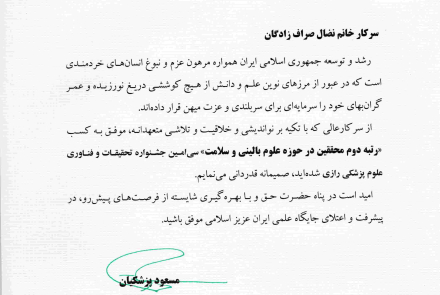 سرکار خانم نضال صراف زادگان
رشد و توسعه جمهوری اسلامی ایران همواره مرهون عزم و نبوغ انسان‌های خردمندی
است که در عبور از مرزهای نوین علم و دانش از هیچ کوششی دریغ نورزیده و عمر
گران‌بهای خود را سرمایه‌ای برای سربلندی و عزت میهن قرار داده‌اند.
از سرکارعالی که با تکیه بر نواندیشی و خلاقیت و تلاشی متعهدانه، موفق به کسب
«رتبه دوم محققین در حوزه علوم بالینی و سلامت» سی‌امین جشنواره تحقیقات و فناوری
علوم پزشکی رازی شده‌اید، صمیمانه قدردانی می‌نمایم.
امید است در پناه حضرت حق و با بهره‌گیری شایسته از فرصت‌های پیش‌رو، در
پیشرفت و اعتلای جایگاه علمی ایران عزیز اسلامی موفق باشید.
مسعود پزشکیان